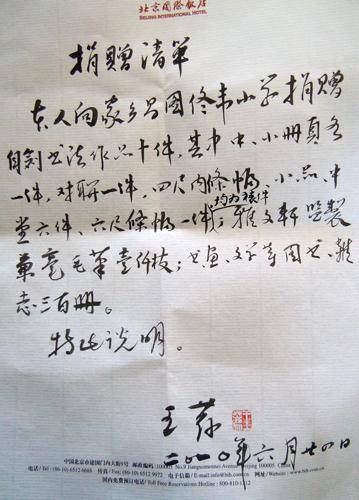 北京国际饭店
BEIJING INTERNATIONAL HOTEL
捐赠清单
本人向家乡吕国佟韦小学捐赠
自创书法作品十件，其中中、小册页各
一件，对联一件，四尺内条幅、小品、中
均为裱件
堂六件、六尺条幅一件；雅文轩监制
兼毫毛笔壹仟枝；书画、文学等图书、杂
志三百册。
特此说明。
王
二〇一〇年六月廿四日
中国北京市建国门内大街9号 邮政编码:100005 No.9 Jianguomennei Avenue Beijing 100005 China
电话/Tel:(86-10) 6512 6688 传真/Fax:(86-10) 6512 9972 电子信箱/E-mail:info@bih.com.cn 网址/Website:www.bih.com.cn
国内免费预订电话/Toll Free Reservations Hotline:800-810-1212